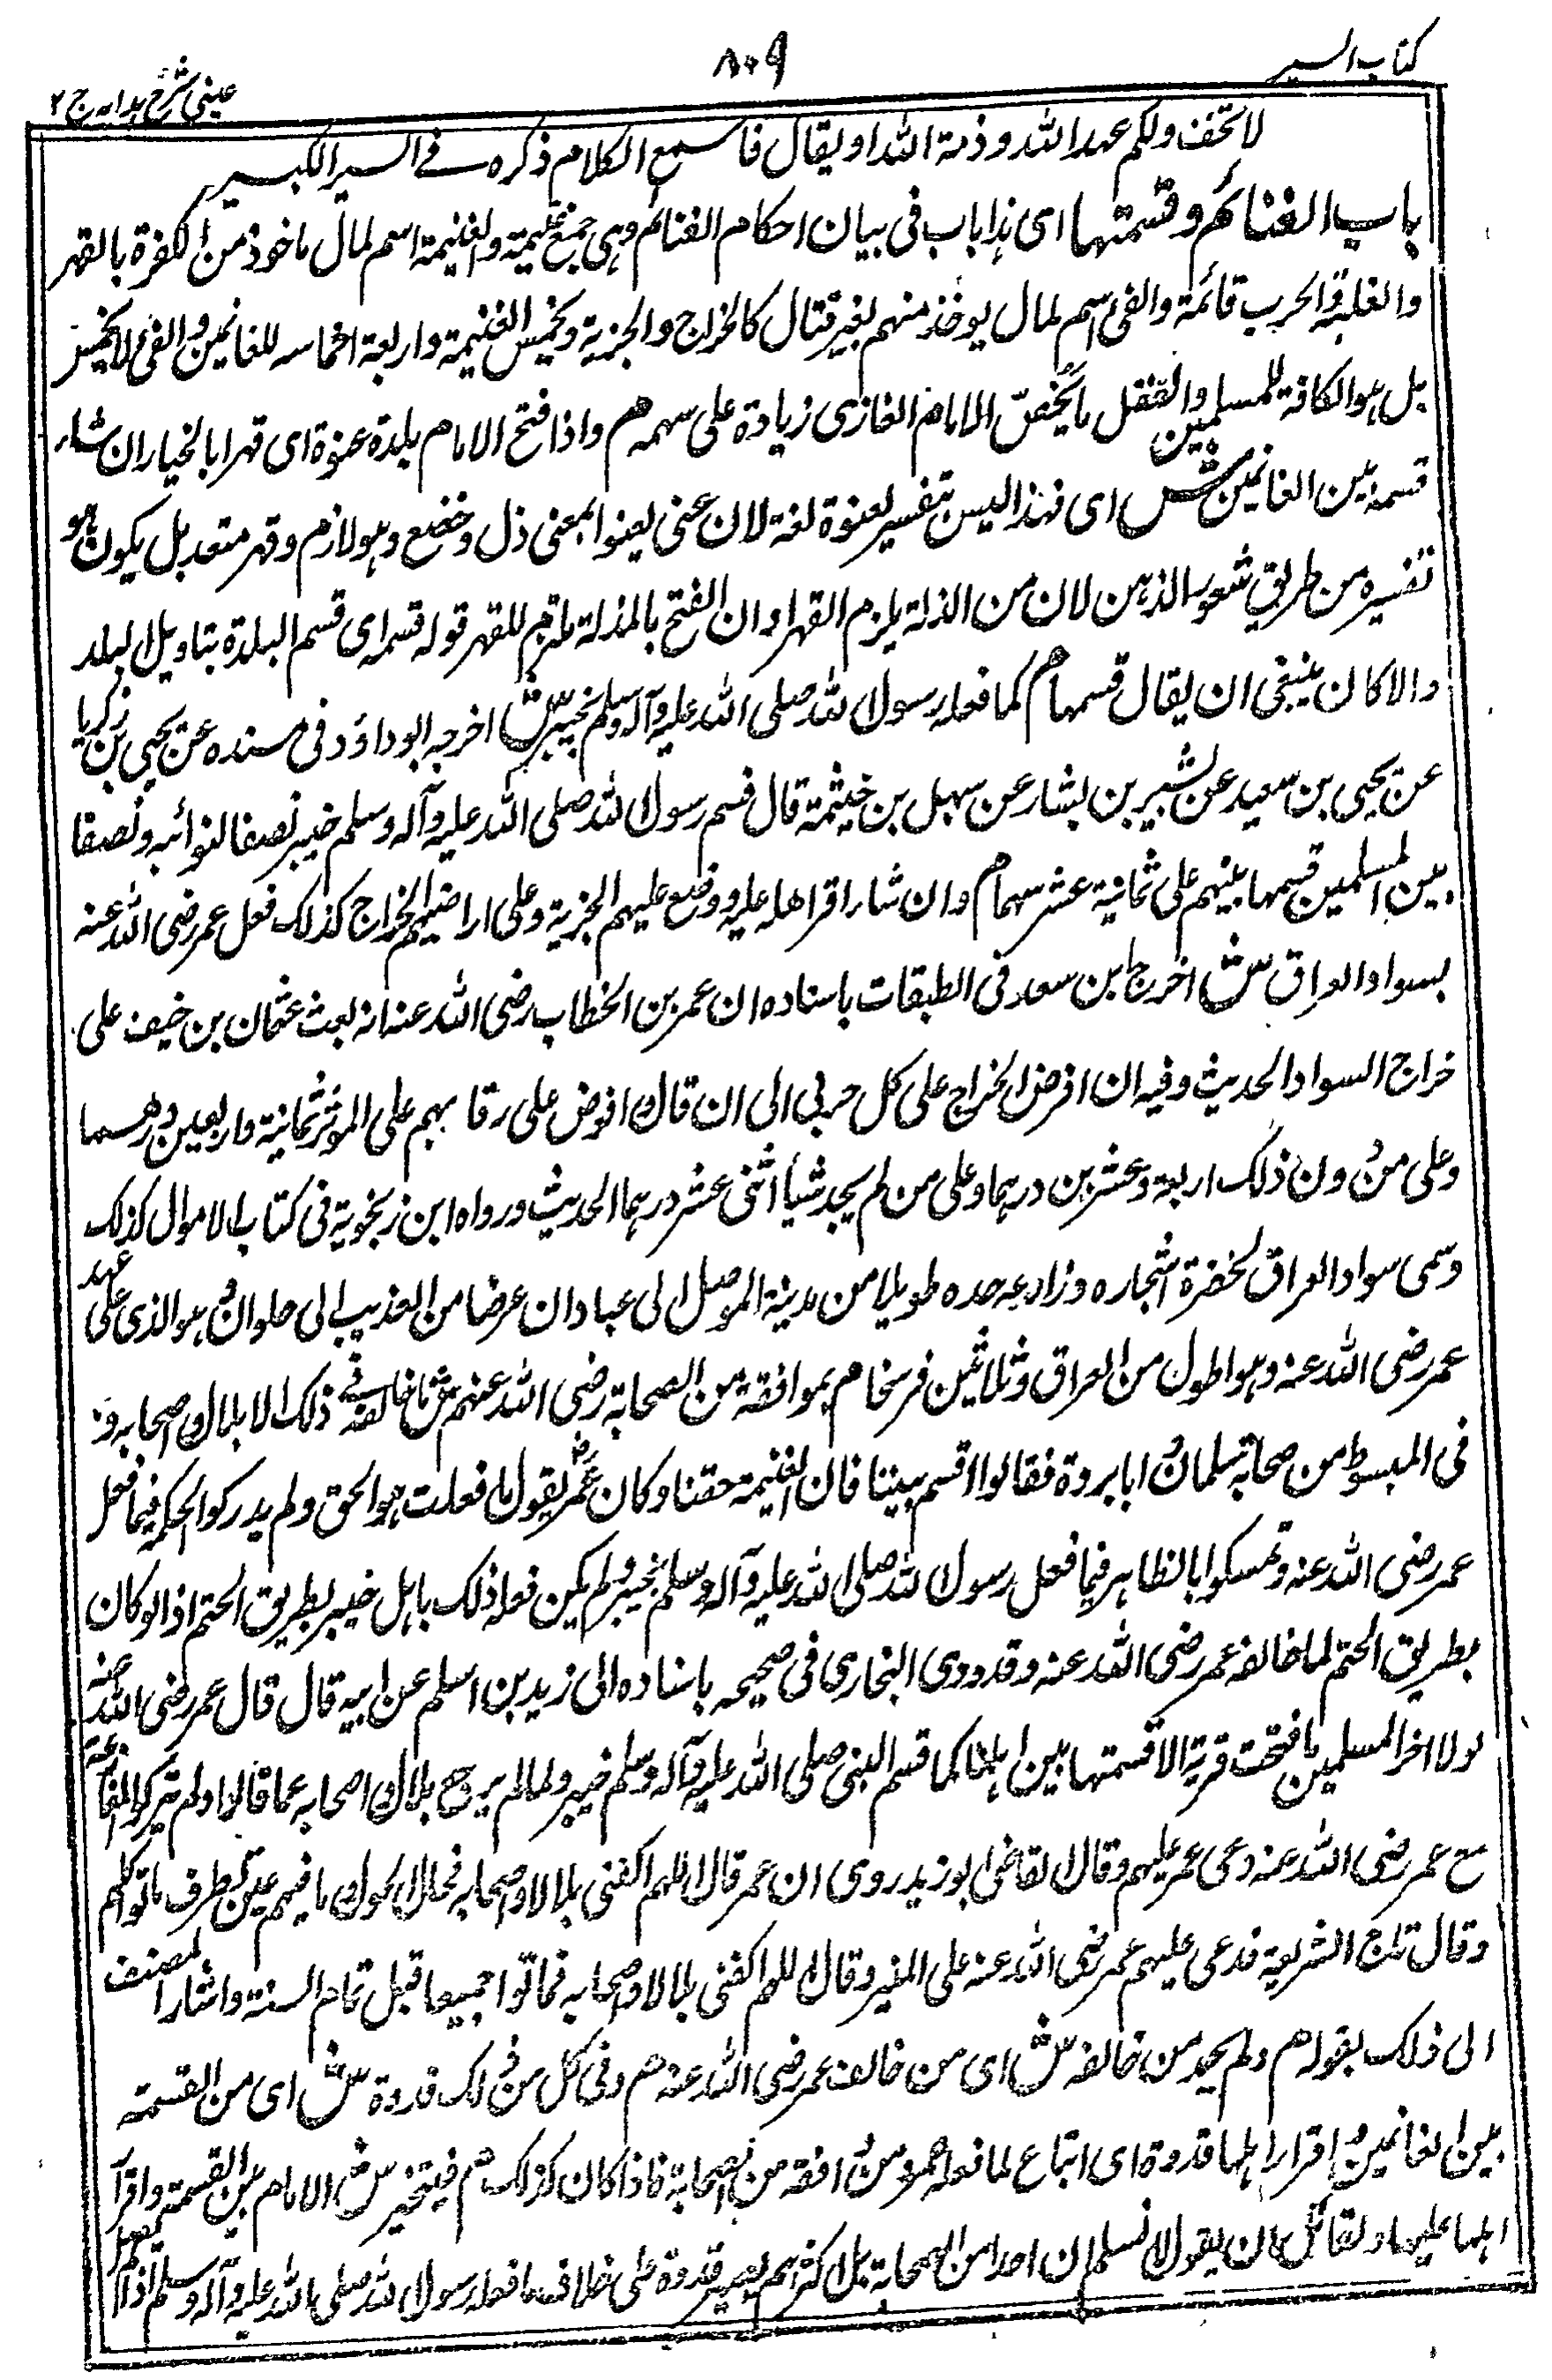 كتاب السير
٨٠٩
عينى شرح هدايه ج ٢
لا تخف ولكم عهد الله وذمة الله او يقال فاسمع الكلام ذكره فى السير الكبير
باب الغنائم وقسمتها اى هذا باب فى بيان احكام الغنائم وهى جمع غنيمة والغنيمة اسم لمال ماخوذ من الكفرة بالقهر
والغلبة والحرب قائمة والفئ اسم لمال يوخذ منهم بغير قتال كالخراج والجزية ويخمس الغنيمة واربعة اخماسه للغانمين والفئ لا يخمس
بل هو الكافة للمسلمين والنفل ما يخص الامام الغازى زيادة على سهمه م واذا فتح الامام بلدة عنوة اى قهرا بالخيار ان شاء
قسمه بين الغانمين ش اى فهذا ليس تفسير لعنوة لغة لان عنى يعنوا بمعنى ذل وخضع وهو لازم وقهر متعد بل يكون هو
تفسيره من طريق شعور الذهن لان من الذلة يلزم القهر او ان الفتح بالمذلة ملتزم للقهر قوله قسمه اى قسم البلدة بتاويل البلد
والا كان ينبغى ان يقال قسمها م كما فعله رسول الله صلى الله عليه وآله وسلم بخيبر ش اخرجه ابو داؤد فى مسنده عن يحيى بن زكريا
عن يحيى بن سعيد عن بشير بن بشار عن سهل بن خيثمة قال قسم رسول الله صلى الله عليه وآله وسلم خيبر نصفا لنوائبه ونصفا
بين المسلمين قسمها بينهم على ثمانية عشر سهما م وان شاء اقر اهله عليه ووضع عليهم الجزية وعلى اراضيهم الخراج كذلك فعل عمر رضى الله عنه
بسواد العراق ش اخرج ابن سعد فى الطبقات باسناده ان عمر بن الخطاب رضى الله عنه انه بعث عثمان بن حنيف على
خراج السواد الحديث وفيه ان افرض الخراج على كل حربى الى ان قال وافرض على رقابهم على الموثر ثمانية واربعين درهما
وعلى من دون ذلك اربعة وعشرين درهما وعلى من لم يجد شيأ اثنى عشر درهما الحديث ورواه ابن زنجوية فى كتاب الاموال كذلك
وسمى سواد العراق لخضرة اشجاره وزارعه حده طويلا من مدينة الموصل الى عبادان عرضا من العذيب الى حلوان وهو الذى على عهد
عمر رضى الله عنه وهو اطول من العراق وثلاثين فرسخا م بموافقة من الصحابة رضى الله عنهم ش ما خالفه فى ذلك الا بلال واصحابه و
فى المبسوط من صحابة سلمان وابا بردة فقالوا اقسم بيننا فان الغنيمة حقنا وكان عمر يقول ما فعلت هو الحق ولم يدركوا الحكمة فيما فعل
عمر رضى الله عنه وتمسكوا بالظاهر فيما فعل رسول الله صلى الله عليه وآله وسلم بخيبر ولم يكن فعله ذلك باهل خيبر بطريق الحتم اذ لو كان
بطريق الحتم لما خالفه عمر رضى الله عنه وقد روى البخارى فى صحيحه باسناده الى زيد بن اسلم عن ابيه قال قال عمر رضى الله عنه
لولا اخر المسلمين ما فتحت قرية الا قسمتها بين اهلها كما قسم النبى صلى الله عليه وآله وسلم خيبر ولما لم يرجع بلال واصحابه عما قالوا ولم يتركوا المنازعة
مع عمر رضى الله عنه دعى عمر عليهم وقال القاضى ابو زيد روى ان عمر قال اللهم اكفنى بلالا واصحابه فما حال الحول وما فيهم عين تطرف ماتوا كلهم
وقال تاج الشريعة فدعى عليهم عمر رضى الله عنه على المنبر وقال اللهم اكفنى بلالا واصحابه فماتوا جميعا قبل تمام السنة واشار المصنف
الى ذلك بقوله م ولم يحمد من خالفه ش اى من خالف عمر رضى الله عنه م وفى كل من ذلك قدوة ش اى من القسمة
بين الغانمين واقرار اهلها قدوة اى اتباع لما فعله عمر ومن وافقه من الصحابة فاذا كان كذلك م فيتخير ش الامام بين القسمة واقرار
اهلها عليها ولقائل ان يقول لا نسلم ان احدا من الصحابة بل اكثرهم يصير قدوة على خلاف ما فعله رسول الله صلى الله عليه وآله وسلم اذا لم